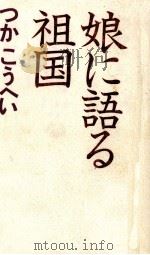 娘に語る
祖国
つかこうへい
www.mtoou.info
mtoou.info